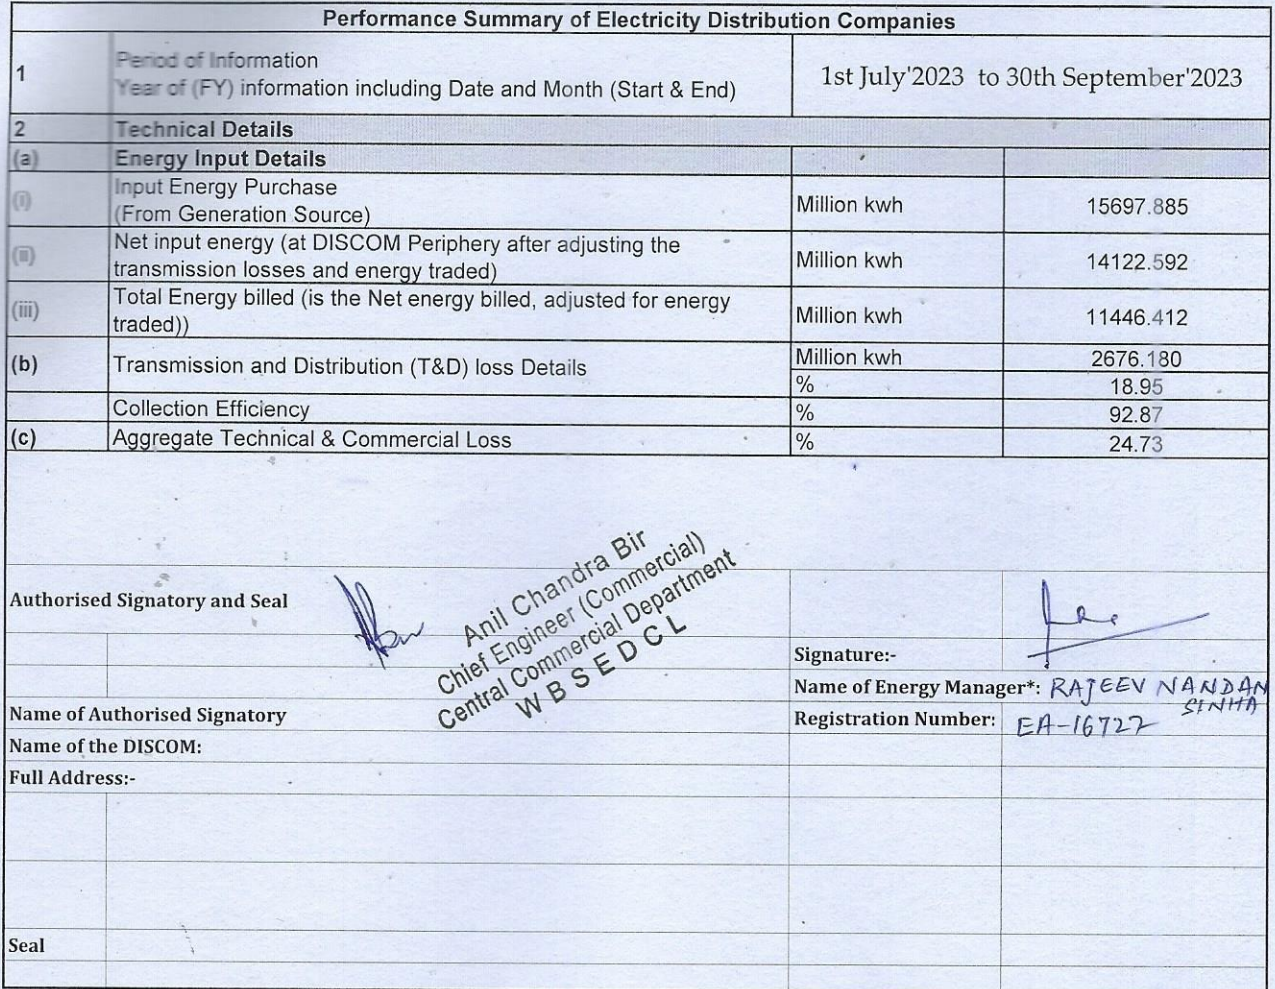 Performance Summary of Electricity Distribution Companies
1
Period of Information
Year of (FY) information including Date and Month (Start & End)
1st July'2023 to 30th September'2023
2 Technical Details
(a) Energy Input Details
(i)
Input Energy Purchase
(From Generation Source)
Million kwh 15697.885
(ii)
Net input energy (at DISCOM Periphery after adjusting the
transmission losses and energy traded)
Million kwh 14122.592
(iii)
Total Energy billed (is the Net energy billed, adjusted for energy
traded))
Million kwh 11446.412
(b) Transmission and Distribution (T&D) loss Details
Million kwh 2676.180
% 18.95
Collection Efficiency % 92.87
(c) Aggregate Technical & Commercial Loss % 24.73
Authorised Signatory and Seal
Anil Chandra Bir
Chief Engineer (Commercial)
Central Commercial Department
W B S E D C L
Signature:-
Name of Energy Manager*: RAJEEV NANDAN
SINHA
Name of Authorised Signatory
Registration Number: EA-16727
Name of the DISCOM:
Full Address:-
Seal